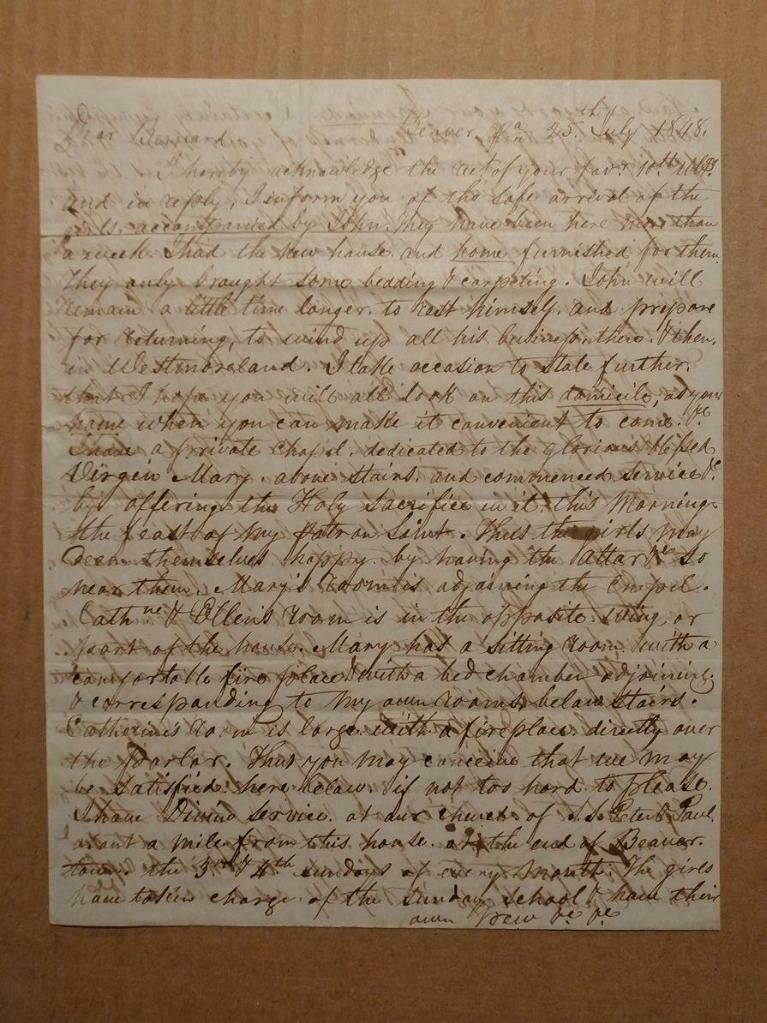 Dear Bernard. Beaver Pa. 25th July 1848.
I hereby acknowledge the rect of your favr 10th
and in reply, I inform you of the safe arrival of the
girls, accompanied by John. They have been here more than
a week. I had the new house and home furnished for them.
They only brought some bedding & carpeting. John will
remain a little time longer, to rest himself, and prepare
for returning, to wind up all his business there, & then,
in Westmoreland. I take occasion to state further,
that I hope you will all look on this domicile, as your
home when you can make it convenient to come. &c
I have a private Chapel, dedicated to the glorious blessed
Virgin Mary, above stairs, and commenced service &c
by offering the Holy Sacrifice in it, this morning
the feast of my patron Saint. Thus the girls may
deem themselves happy by having the Altar &c so
near them. Mary's room is adjoining the Chapel.
Cathne & Ellen's room is in the opposite wing, or
part of the house. Mary has a sitting room, with a
comfortable fire place & with a bed chamber adjoining.
& corresponding to my own rooms below stairs.
Catherine's room is large with a fireplace, directly over
the parlor. Thus you may conceive that we may
be satisfied here below, if not too hard to please.
I have Divine Service, at our church of S.S. Peter & Paul,
about a mile from this house, at the end of Beaver
town, the 3rd & 4th sundays of every month. The girls
have taken charge of the Sunday school & have their
own pew &c &c